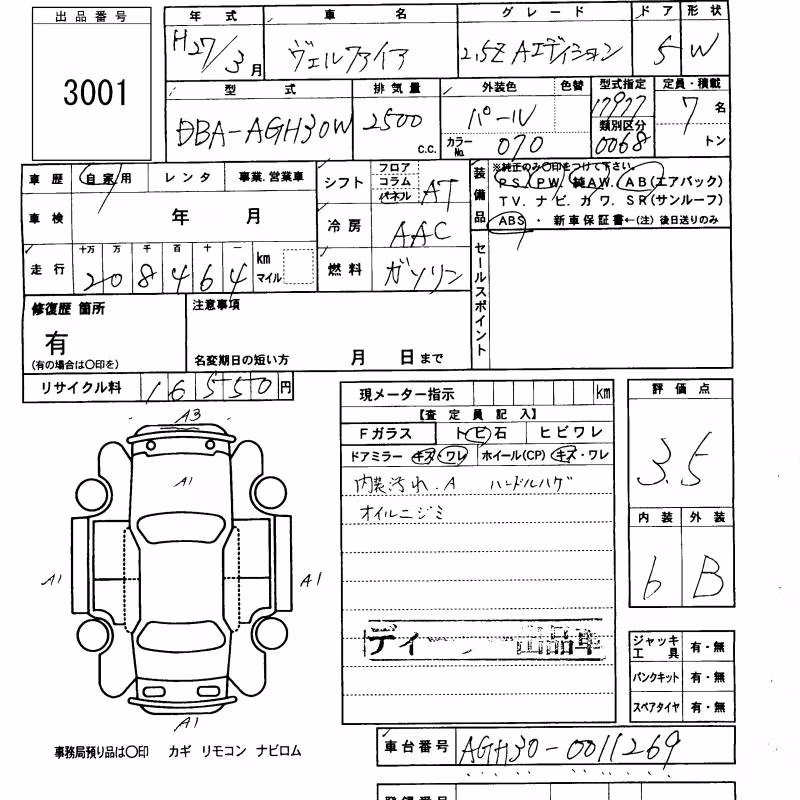 出品番号 3001
年式 車名 グレード ドア 形状
H27/3月 ヴェルファイア 2.5Z Aエディション 5 W
型式 排気量 外装色 色替 型式指定 定員・積載
DBA-AGH30W 2500 C.C. パール 17977 7名
カラーNo. 070 類別区分 0068 トン
車歴 自家用 レンタ 事業.営業車
シフト フロア コラム パネル AT
装備品 ※純正のみ〇印をつけて下さい。
PS. PW. 純AW. AB(エアバック)
TV. ナビ. カワ. SR(サンルーフ)
ABS ・ 新車保証書←(注) 後日送りのみ
車検 年 月
冷房 AAC
走行 十万 万 千 百 十 一 km マイル
208464
燃料 ガソリン
セールスポイント
修復歴 箇所
有
(有の場合は〇印を)
注意事項
名変期日の短い方 月 日まで
リサイクル料 16550円
現メーター指示 km
【査定員記入】
Fガラス トビ石 ヒビワレ
ドアミラー キズ・ワレ ホイール(CP) キズ・ワレ
内装汚れ.A ハンドルハゲ
オイルニジミ
ディ 出品車
評価点
3.5
内装 外装
6 B
A3
A1
A1
A1
A1
ジャッキ工具 有・無
パンクキット 有・無
スペアタイヤ 有・無
事務局預り品は〇印 カギ リモコン ナビロム
車台番号 AGH30-0011269
登録番号